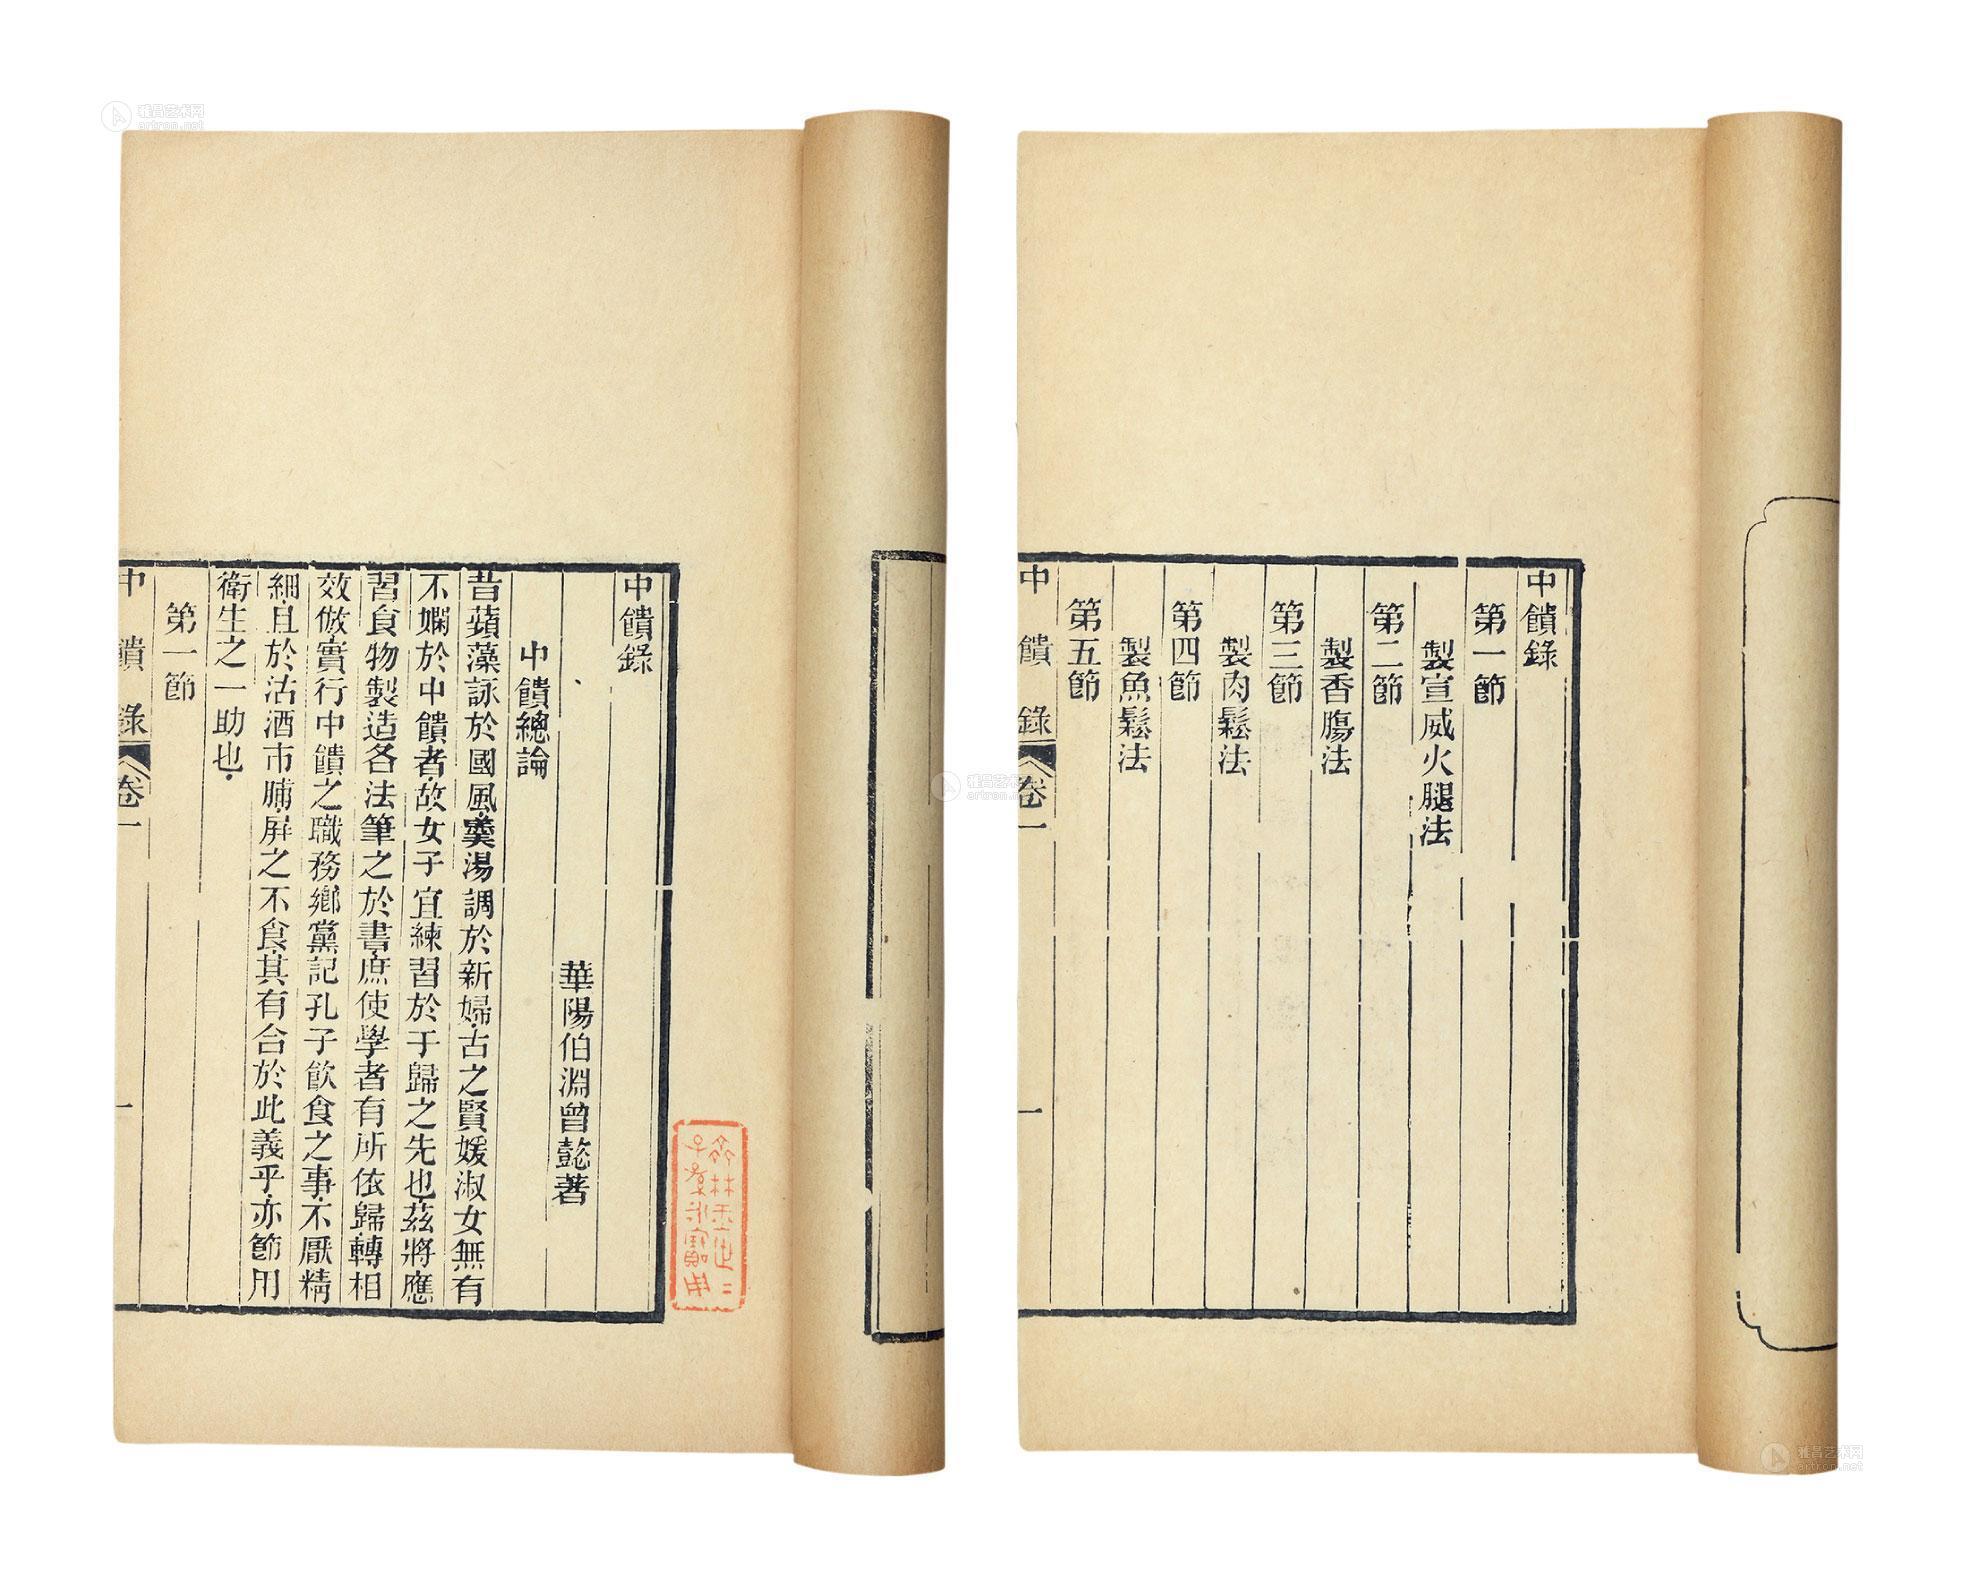 中饋錄
第一節
製宣威火腿法
第二節
製香腸法
第三節
製肉鬆法
第四節
製魚鬆法
第五節
中饋錄 卷一 一
中饋錄
華陽伯淵曾懿著
中饋總論
昔蘋藻詠於國風羹湯調於新婦古之賢媛淑女無有
不嫻於中饋者故女子宜練習於于歸之先也茲將應
習食物製造各法筆之於書庶使學者有所依歸轉相
效倣實行中饋之職務鄉黨記孔子飲食之事不厭精
細且於沽酒市脯屏之不食其有合於此義乎亦節用
衛生之一助也
第一節
中饋錄 卷一 一
雅昌艺术网
artron.net
雅昌艺术网
artron.net
雅昌艺术网
artron.net